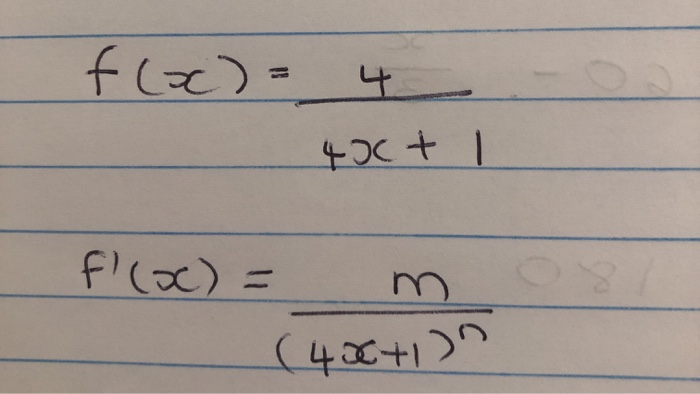 f(x) = 4
4x + 1
f'(x) = m
(4x+1)ⁿ